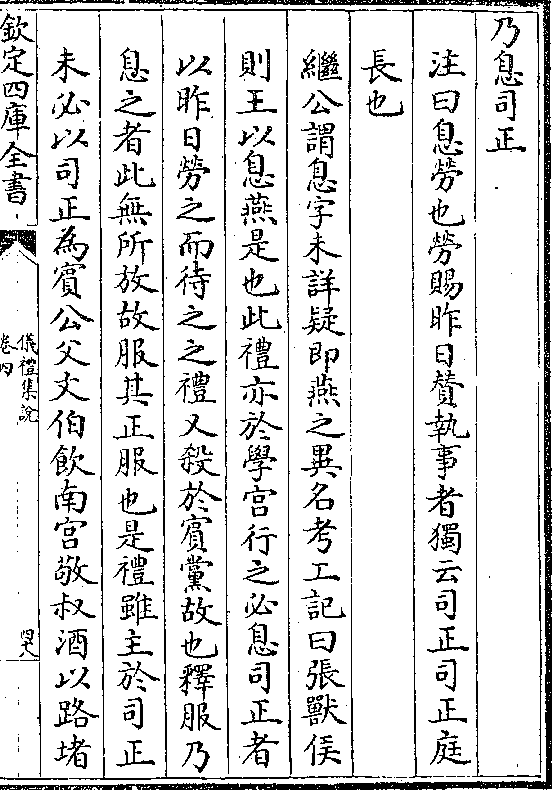 乃息司正
注曰息勞也勞賜昨日贊執事者獨云司正司正庭
長也
繼公謂息字未詳疑即燕之異名考工記曰張獸侯
則王以息燕是也此禮亦於學宫行之必息司正者
以昨日勞之而待之之禮又殺於賓黨故也釋服乃
息之者此無所放故服其正服也是禮雖主於司正
未必以司正為賓公父文伯飲南宫敬叔酒以路堵
欽定四庫全書
儀禮集說
卷四
四八